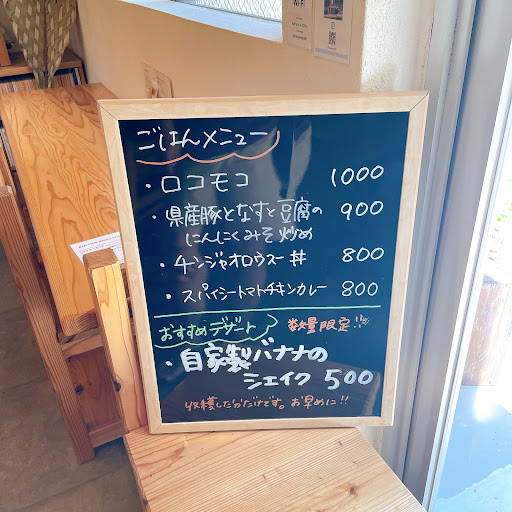 Wi-Fi
ごはんメニュー
・ロコモコ 1000
・県産豚となすと豆腐の 900
にんにくみそ炒め
・チンジャオロウスー丼 800
・スパイシートマトチキンカレー 800
おすすめデザート 数量限定!!
・自家製バナナの
シェイク 500
収穫した分だけです。お早めに!!